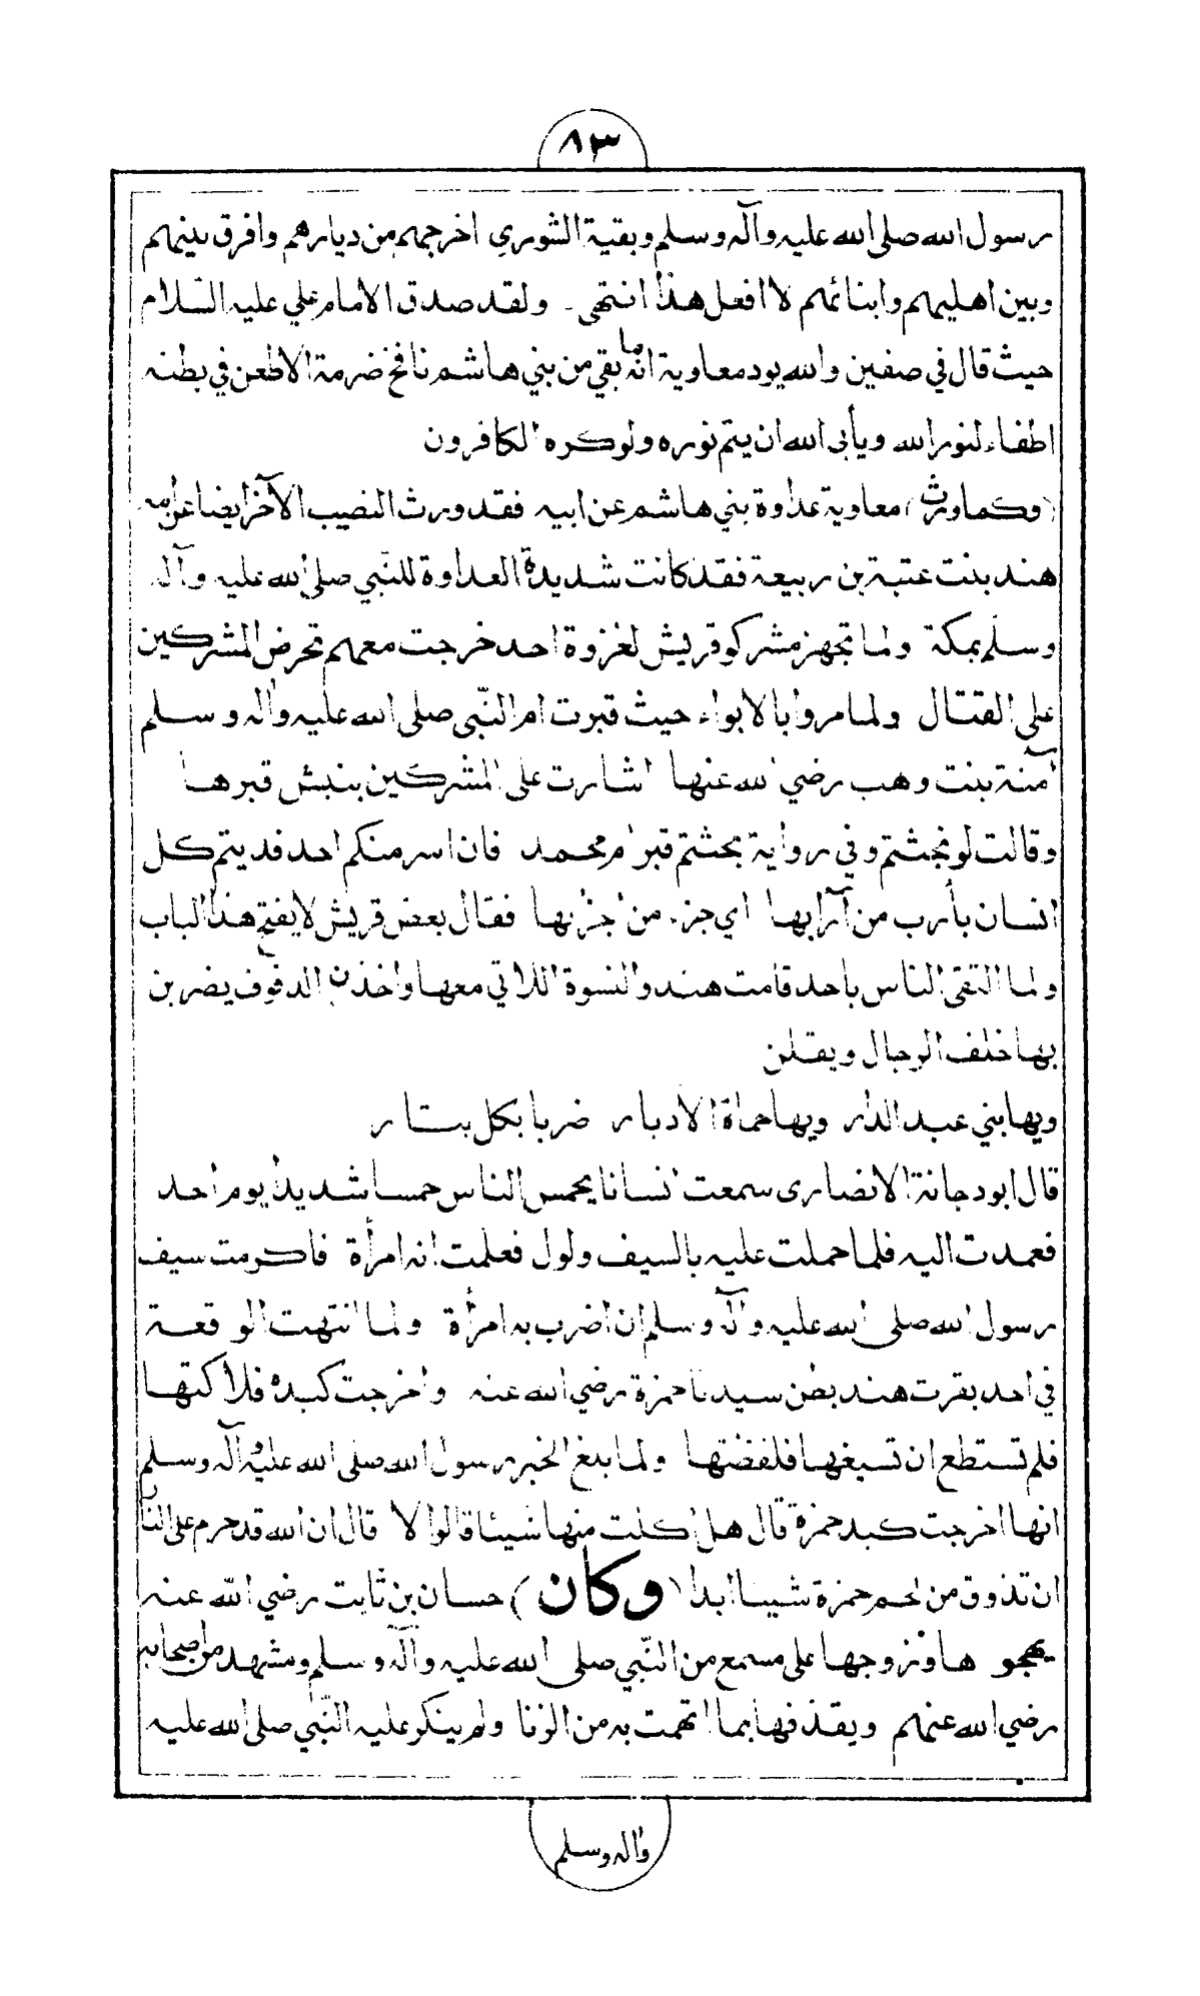 ٨٣
رسول الله صلى الله عليه وآله وسلم وبقية الشورى اخرجهم من ديارهم وافرق بينهم
وبين اهليهم وابنائهم لا افعل هذا انتهى. ولقد صدق الامام علي عليه السلام
حيث قال في صفين والله يود معاوية انه ما بقي من بني هاشم نافخ ضرمة الا طعن في بطنه
اطفاء لنور الله ويأبى الله ان يتم نوره ولو كره الكافرون
(وكما ورث) معاوية عداوة بني هاشم عن ابيه فقد ورث النصيب الآخر ايضا عن امه
هند بنت عتبة بن ربيعة فقد كانت شديدة العداوة للنبي صلى الله عليه وآله
وسلم بمكة ولما تجهز مشركو قريش لغزوة احد خرجت معهم تحرض المشركين
على القتال ولما مروا بالابواء حيث قبرت ام النبي صلى الله عليه وآله وسلم
آمنة بنت وهب رضي الله عنها اشارت على المشركين بنبش قبرها
وقالت لو نجثتم وفي رواية بحثتم قبر ام محمد فان اسر منكم احد فديتم كل
انسان بأرب من آرابها اي جزء من اجزائها فقال بعض قريش لا يفتح هذا الباب
ولما التقى الناس باحد قامت هند والنسوة اللاتي معها واخذن الدفوف يضربن
بها خلف الرجال ويقلن
ويها بني عبد الدار ويها حماة الأدبار ضربا بكل بتار
قال ابو دجانة الانصارى سمعت انسانا يحمس الناس حمسا شديدا يوم احد
فعمدت اليه فلما حملت عليه بالسيف ولول فعلمت انه امرأة فاكرمت سيف
رسول الله صلى الله عليه وآله وسلم ان اضرب به امرأة ولما انتهت الوقعة
في احد بقرت هند بطن سيدنا حمزة رضي الله عنه واخرجت كبده فلاكتها
فلم تستطع ان تسيغها فلفضتها ولما بلغ الخبر رسول الله صلى الله عليه وآله وسلم
انها اخرجت كبد حمزة قال هل اكلت منها شيئا قالوا لا قال ان الله قد حرم على النار
ان تذوق من لحم حمزة شيئا ابدا (وكان) حسان بن ثابت رضي الله عنه
يهجو ها وزوجها على مسمع من النبي صلى الله عليه وآله وسلم ومشهد من اصحابه
رضي الله عنهم ويقذفها بما اتهمت به من الزنا ولم ينكر عليه النبي صلى الله عليه
وآله وسلم